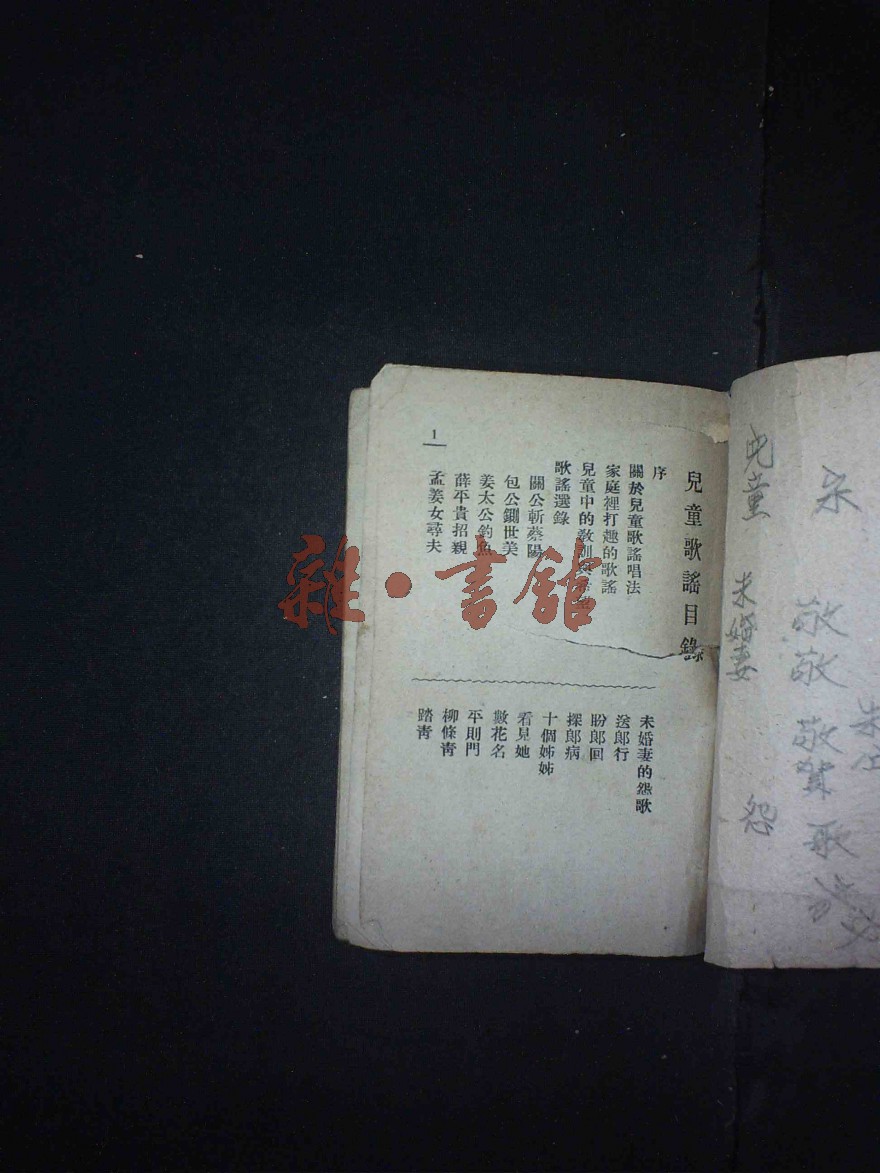 兒童歌謠目錄
序
關於兒童歌謠唱法
家庭裡打趣的歌謠
兒童中的教訓與希望
歌謠選錄
關公斬蔡陽
包公鍘世美
姜太公釣魚
薛平貴招親
孟姜女尋夫
1
未婚妻的怨歌
送郎行
盼郎回
探郎病
十個姊姊
看見她
數花名
平則門
柳條青
踏青
雜·書館
敬敬敬
兒童
未婚妻
怨